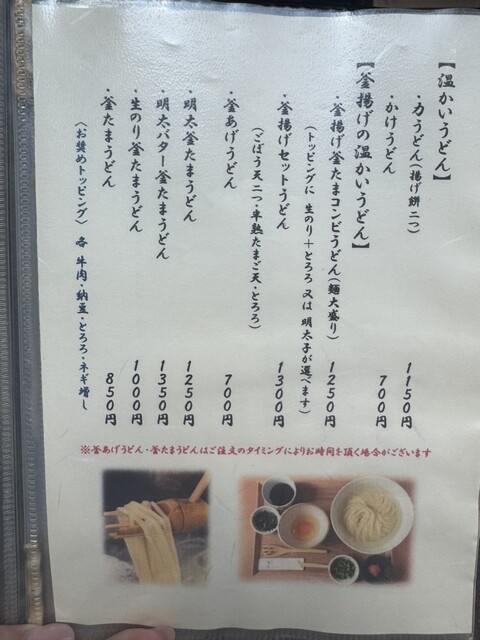 【温かいうどん】
・力うどん(揚げ餅 二つ) 1150円
・かけうどん 700円
【釜揚げの温かいうどん】
・釜揚げ釜たまコンビうどん(麺大盛り) 1250円
(トッピングに 生のり＋とろろ 又は 明太子が選べます)
・釜揚げセットうどん 1300円
(ごぼう天二つ・半熟たまご天・とろろ)
・釜あげうどん 700円
・明太釜たまうどん 1250円
・明太バター釜たまうどん 1350円
・生のり釜たまうどん 1000円
・釜たまうどん 850円
(お奨めトッピング) 各 牛肉・納豆・とろろ・ネギ増し
※釜あげうどん・釜たまうどんはご注文のタイミングによりお時間を頂く場合がございます